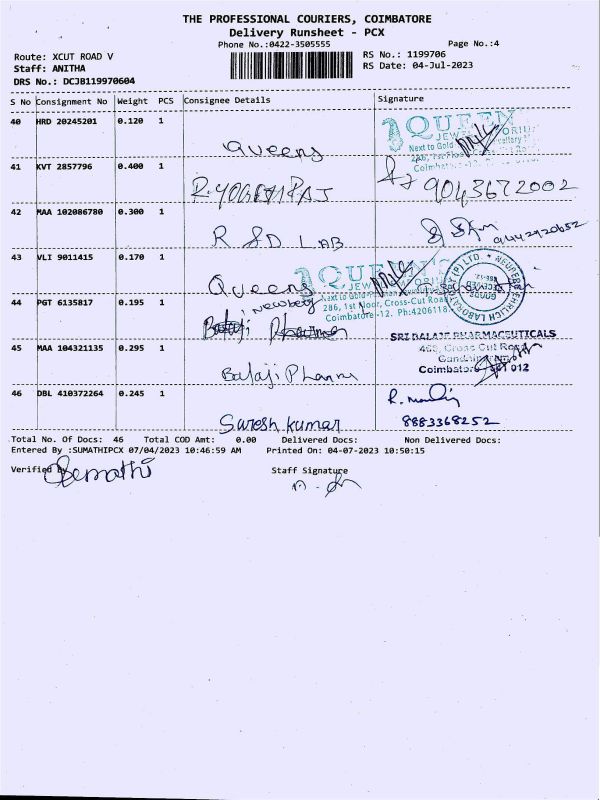 THE PROFESSIONAL COURIERS, COIMBATORE
Delivery Runsheet - PCX
Phone No.:0422-3505555
Page No.:4
Route: XCUT ROAD V
RS No.: 1199706
Staff: ANITHA
RS Date: 04-Jul-2023
DRS No.: DCJB119970604
S No Consignment No Weight PCS Consignee Details Signature
40 HRD 20245201 0.120 1
Queens
QUEEN
JEW
Next to Gold
41 KVT 2857796 0.400 1
R.YOGARAJ
9043672002
42 MAA 102086780 0.300 1
R S D LAB
9442920652
43 VLI 9011415 0.170 1
Queens
QUEEN
JEWE
Next to Gold
286, 1st Floor, Cross-Cut Road
Coimbatore-12. Ph:4206118
44 PGT 6135817 0.195 1
Newberg
Balaji
45 MAA 104321135 0.295 1
Balaji Pharma
SRI BALAJI PHARMACEUTICALS
Cross Cut Road
Gandhipuram
Coimbatore 641 012
46 DBL 410372264 0.245 1
Suresh kumar
8883368252
Total No. Of Docs: 46 Total COD Amt: 0.00 Delivered Docs: Non Delivered Docs:
Entered By :SUMATHIPCX 07/04/2023 10:46:59 AM Printed On: 04-07-2023 10:50:15
Verified By
Staff Signature